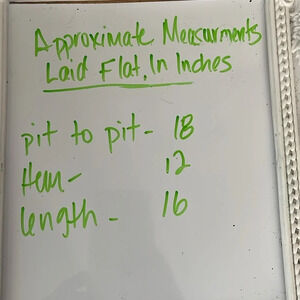 Approximate Measurments
Laid Flat, In Inches
pit to pit - 18
Hem - 12
length - 16